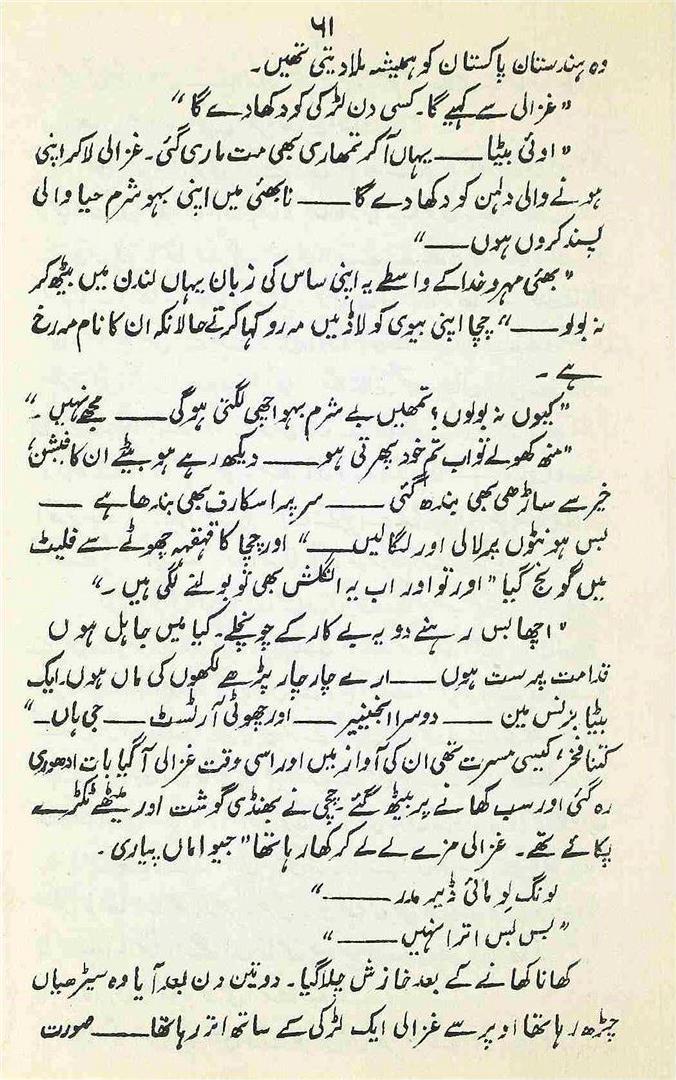 ۶۱
وہ ہندستان پاکستان کو ہمیشہ ملا دیتی تھیں۔
"غزالی سے کہیے گا۔ کسی دن لڑکی کو دکھا دے گا"
"اوئی بیٹا —— یہاں آ کر تمھاری بھی مت ماری گئی۔ غزالی لا کر اپنی
ہونے والی دلہن کو دکھا دے گا —— نا بھئی میں اپنی بہو شرم حیا والی
پسند کروں ہوں ——"
"بھئی مہرو خدا کے واسطے یہ اپنی ساس کی زبان یہاں لندن میں بیٹھ کر
نہ بولو ——" چچا اپنی بیوی کو لاڈ میں مہ رو کہا کرتے حالانکہ ان کا نام مہ رخ
ہے۔
"کیوں نہ بولوں؟ تمھیں بے شرم بہو اچھی لگتی ہوگی —— مجھے نہیں۔"
"منھ کھولے تو اب تم خود پھرتی ہو —— دیکھ رہے ہو بیٹے ان کا فیشن،
خیر سے ساڑھی بھی بندھ گئی —— سر پر اسکارف بھی بندھا ہے ——
بس ہونٹوں پر لالی اور لگا لیں ——" اور چچا کا قہقہہ چھوٹے سے فلیٹ
میں گونج گیا "اور تو اور اب یہ انگلش بھی تو بولنے لگی ہیں۔"
"اچھا بس رہنے دو یہ بے کار کے چونچلے۔ کیا میں جاہل ہوں
قدامت پرست ہوں —— ارے چار چار پڑھے لکھوں کی ماں ہوں۔ ایک
بیٹا بزنس مین —— دوسرا انجینیر —— اور چھوٹی آرٹسٹ —— جی ہاں۔"
کتنا فخر، کیسی مسرت تھی ان کی آواز میں اور اسی وقت غزالی آ گیا بات ادھوری
رہ گئی اور سب کھانے پر بیٹھ گئے۔ چچی نے بھنڈی گوشت اور میٹھے ٹکڑے
پکائے تھے۔ غزالی مزے لے لے کر کھا رہا تھا "جیو اماں پیاری۔
لونگ لو مائی ڈیر مدر ——"
"بس بس اترا نہیں ——"
کھانا کھانے کے بعد خازش چلا گیا۔ دو تین دن بعد آیا وہ سیڑھیاں
چڑھ رہا تھا اوپر سے غزالی ایک لڑکی کے ساتھ اتر رہا تھا —— صورت